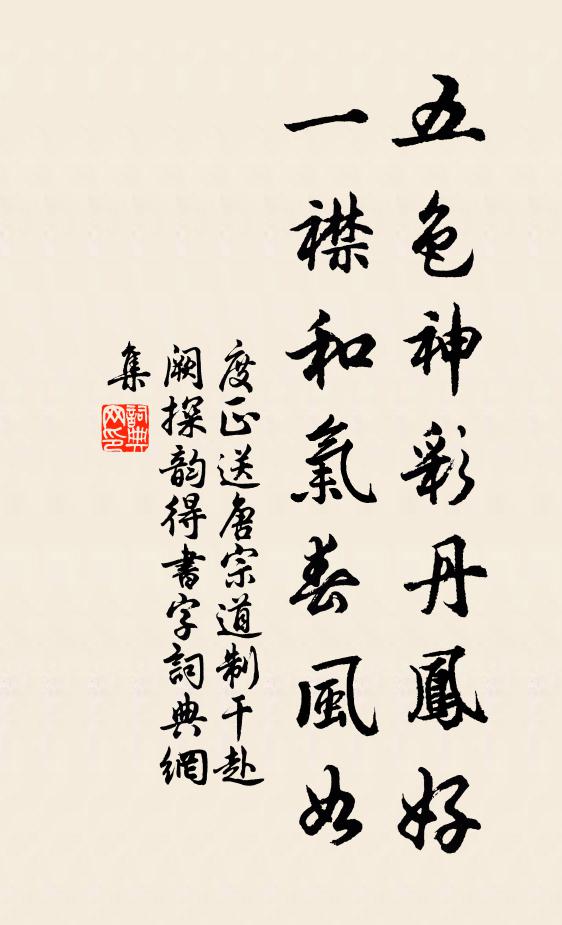 五色神彩丹鳳好
一襟和氣春風如
度正送唐宗道制干赴
闕探韵得書字詞典網
集
詞典
网印